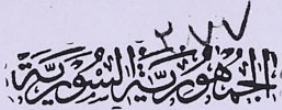 ٢٠٧٧
الجُمهُورِيَّة السُّورِيَّة